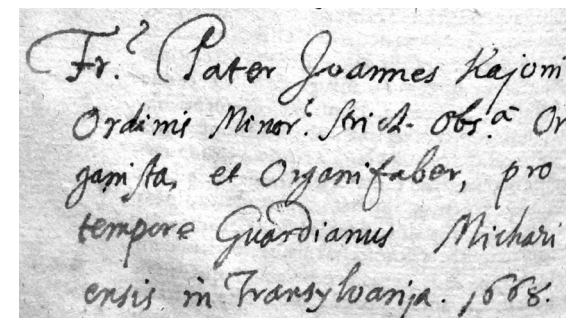 Fr.² Pater Joannes Kajoni
Ordinis Minor.² Strict. Obs.ª Or
ganista, et Organifaber, pro
tempore Guardianus Michazi
ensis in Transylvania. 1668.